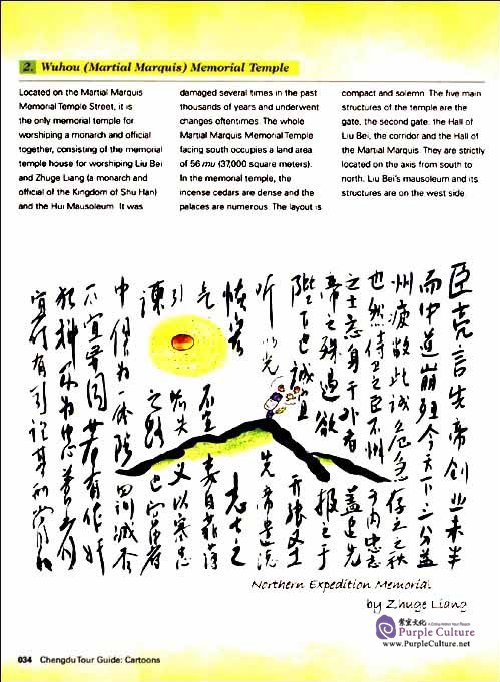 2. Wuhou (Martial Marquis) Memorial Temple
Located on the Martial Marquis
Memorial Temple Street, it is
the only memorial temple for
worshiping a monarch and official
together, consisting of the memorial
temple house for worshiping Liu Bei
and Zhuge Liang (a monarch and
official of the Kingdom of Shu Han)
and the Hui Mausoleum. It was
damaged several times in the past
thousands of years and underwent
changes oftentimes. The whole
Martial Marquis Memorial Temple
facing south occupies a land area
of 56 mu (37,000 square meters).
In the memorial temple, the
incense cedars are dense and the
palaces are numerous. The layout is
compact and solemn. The five main
structures of the temple are the
gate, the second gate, the Hall of
Liu Bei, the corridor and the Hall of
the Martial Marquis. They are strictly
located on the axis from south to
north. Liu Bei's mausoleum and its
structures are on the west side.
臣亮言先帝创业未半
而中道崩殂今天下三分益
州疲敝此诚危急存亡之秋
也然侍卫之臣不懈于内忠志
之士忘身于外者盖追先
帝之殊遇欲报之于
陛下也诚宜开张圣
听以光先帝遗德
恢弘志士之
气不宜妄自菲薄
引喻失义以塞忠
谏之路也宫中府
中俱为一体陟罚臧否
不宜异同若有作奸
犯科及为忠善者
宜付有司论其刑赏
Northern Expedition Memorial
by Zhuge Liang
紫宸文化
Purple Culture
www.PurpleCulture.net
034 Chengdu Tour Guide: Cartoons